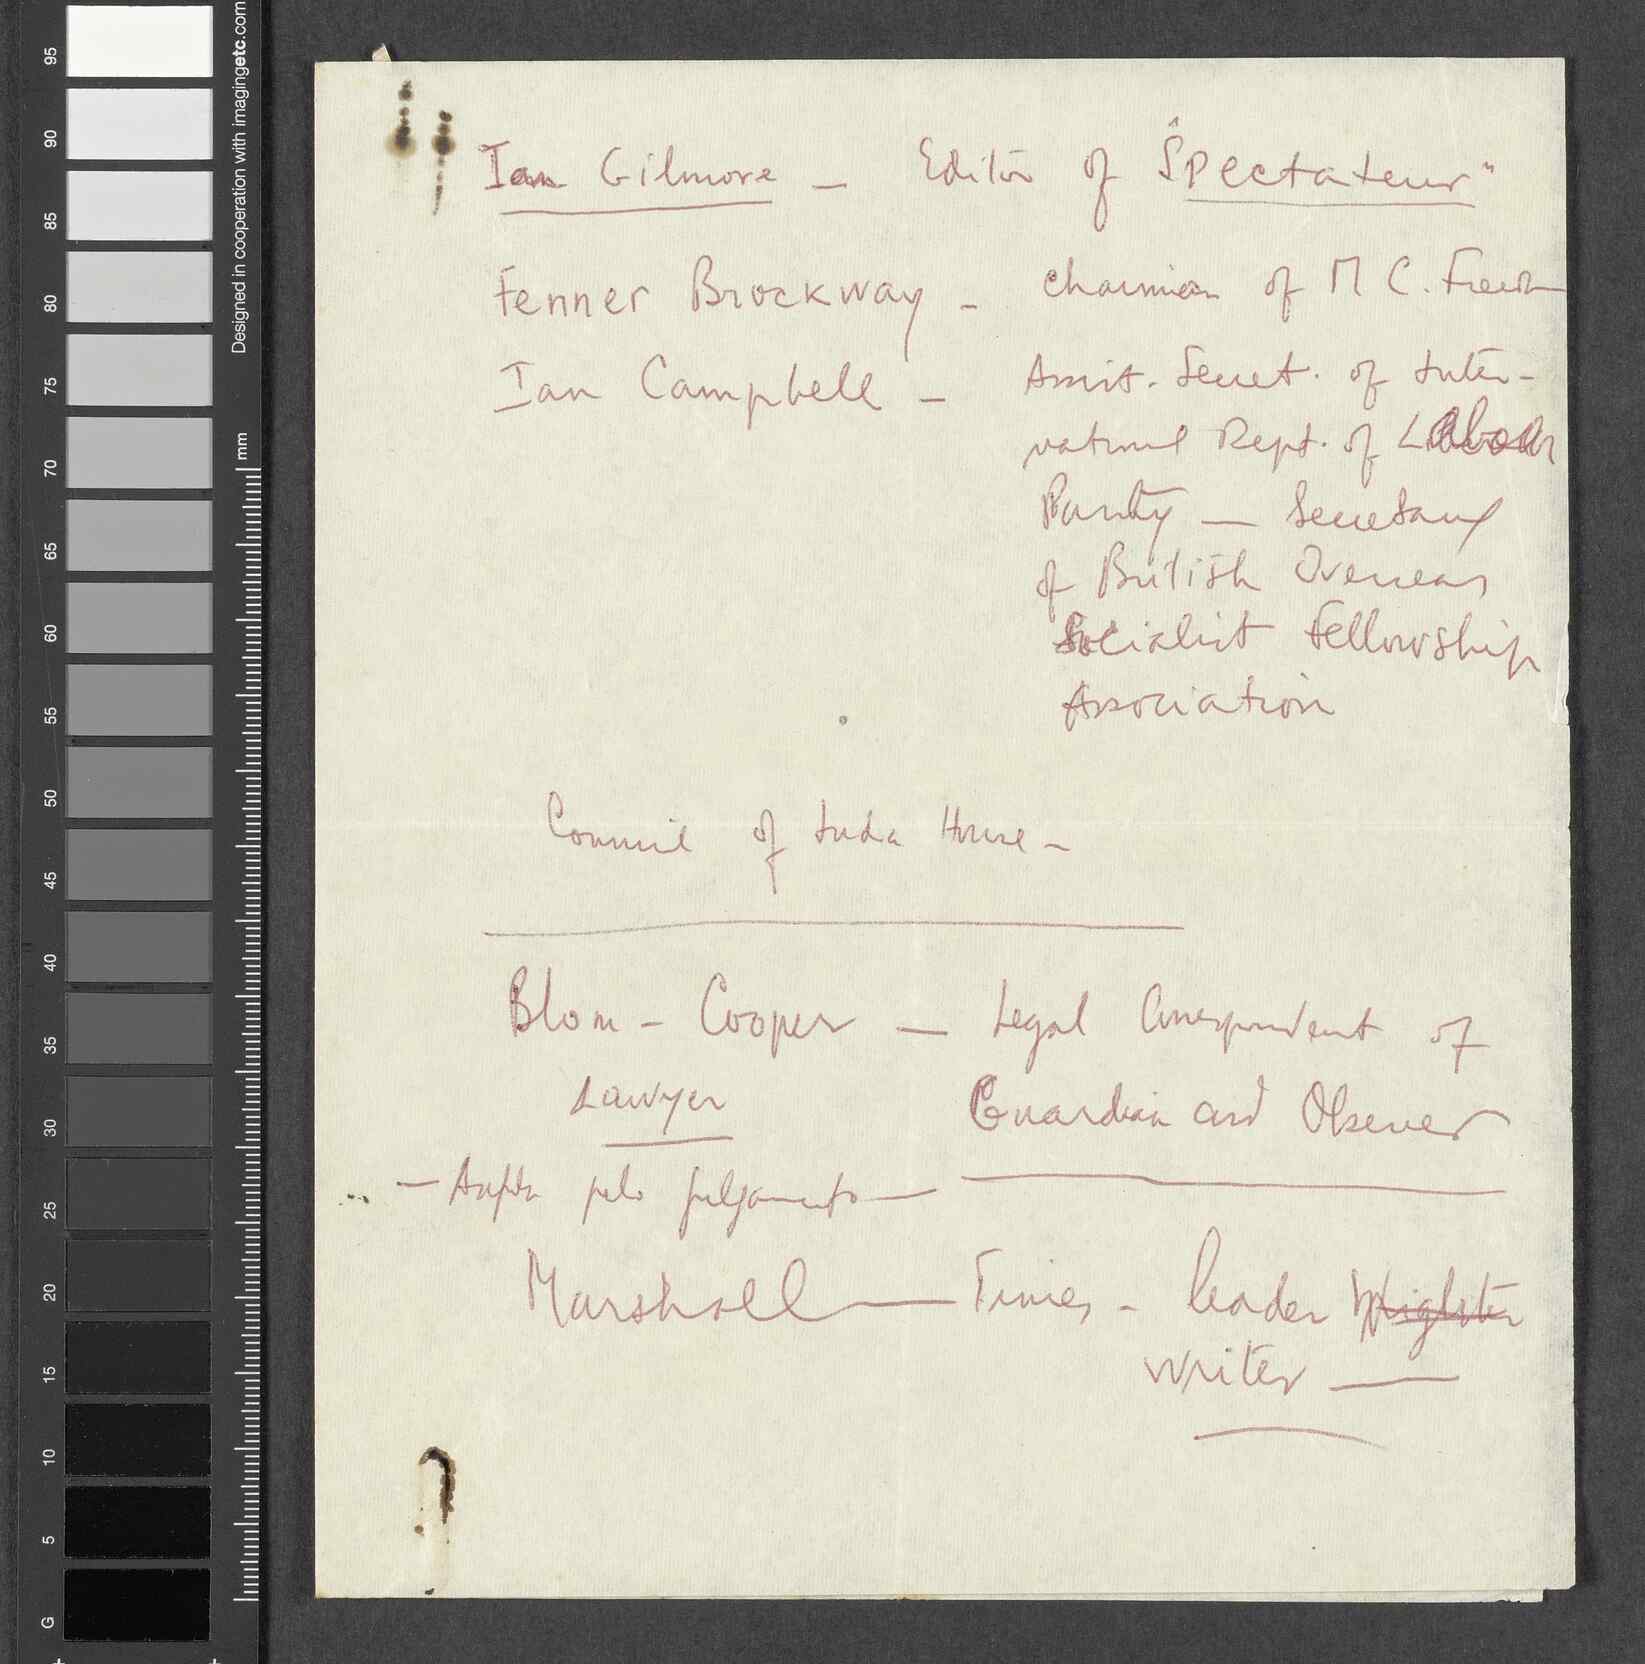 Ian Gilmore — Editor of "Spectateur"
Fenner Brockway — Chairman of M C. Freedom
Ian Campbell — Assist. Secret. of Inter-
national Dept. of Labour
Party — Secretary
of British Overseas
Socialist Fellowship
Association
Council of India House —
Blom - Cooper — Legal Correspondent of
Lawyer Guardian and Observer
pelo julgamento —
Marshall — Times - leader
writer —
95
90
85
80
75
70
65
60
55
50
45
40
35
30
25
20
15
10
5
G
mm
Designed in cooperation with imagingetc.com